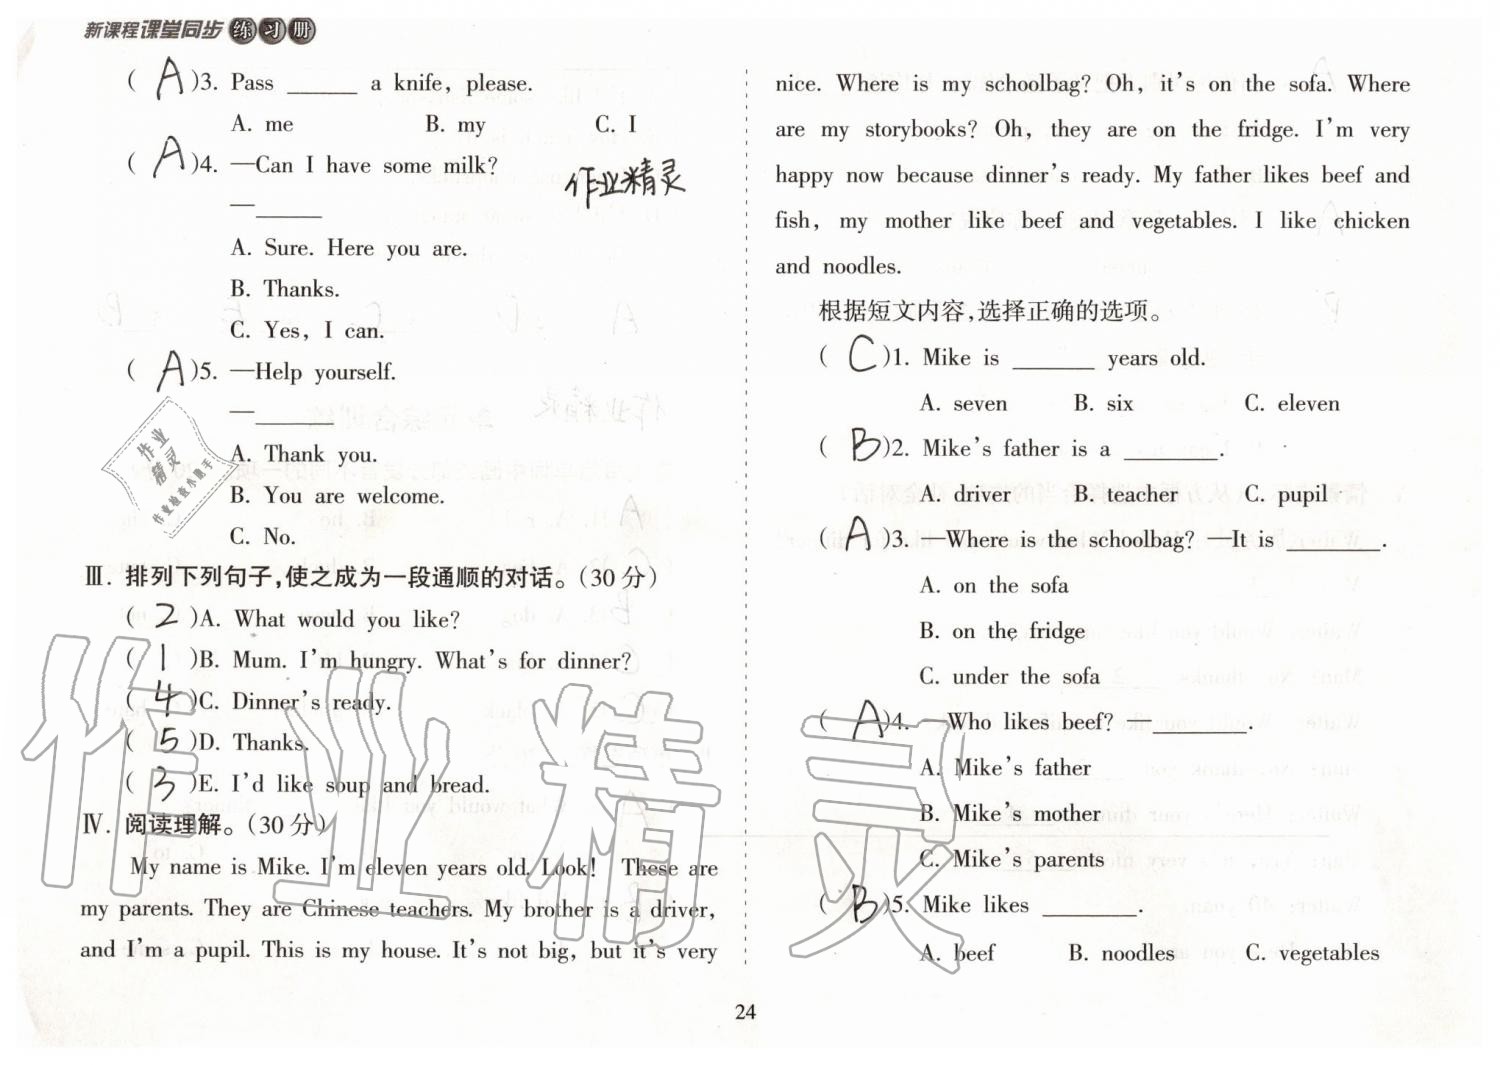 新课程课堂同步练习册
( A )3. Pass ______ a knife, please.
A. me B. my C. I
( A )4. —Can I have some milk?
—______
A. Sure. Here you are.
B. Thanks.
C. Yes, I can.
( A )5. —Help yourself.
—______
A. Thank you.
B. You are welcome.
C. No.
Ⅲ. 排列下列句子,使之成为一段通顺的对话。(30分)
( 2 )A. What would you like?
( 1 )B. Mum. I'm hungry. What's for dinner?
( 4 )C. Dinner's ready.
( 5 )D. Thanks.
( 3 )E. I'd like soup and bread.
Ⅳ. 阅读理解。(30分)
My name is Mike. I'm eleven years old. Look! These are
my parents. They are Chinese teachers. My brother is a driver,
and I'm a pupil. This is my house. It's not big, but it's very
作业精灵
作业
精灵
作业检查小能手
作业精灵
nice. Where is my schoolbag? Oh, it's on the sofa. Where
are my storybooks? Oh, they are on the fridge. I'm very
happy now because dinner's ready. My father likes beef and
fish, my mother like beef and vegetables. I like chicken
and noodles.
根据短文内容,选择正确的选项。
( C )1. Mike is ______ years old.
A. seven B. six C. eleven
( B )2. Mike's father is a ______.
A. driver B. teacher C. pupil
( A )3. —Where is the schoolbag? —It is ______.
A. on the sofa
B. on the fridge
C. under the sofa
( A )4. —Who likes beef? —______.
A. Mike's father
B. Mike's mother
C. Mike's parents
( B )5. Mike likes ______.
A. beef B. noodles C. vegetables
24